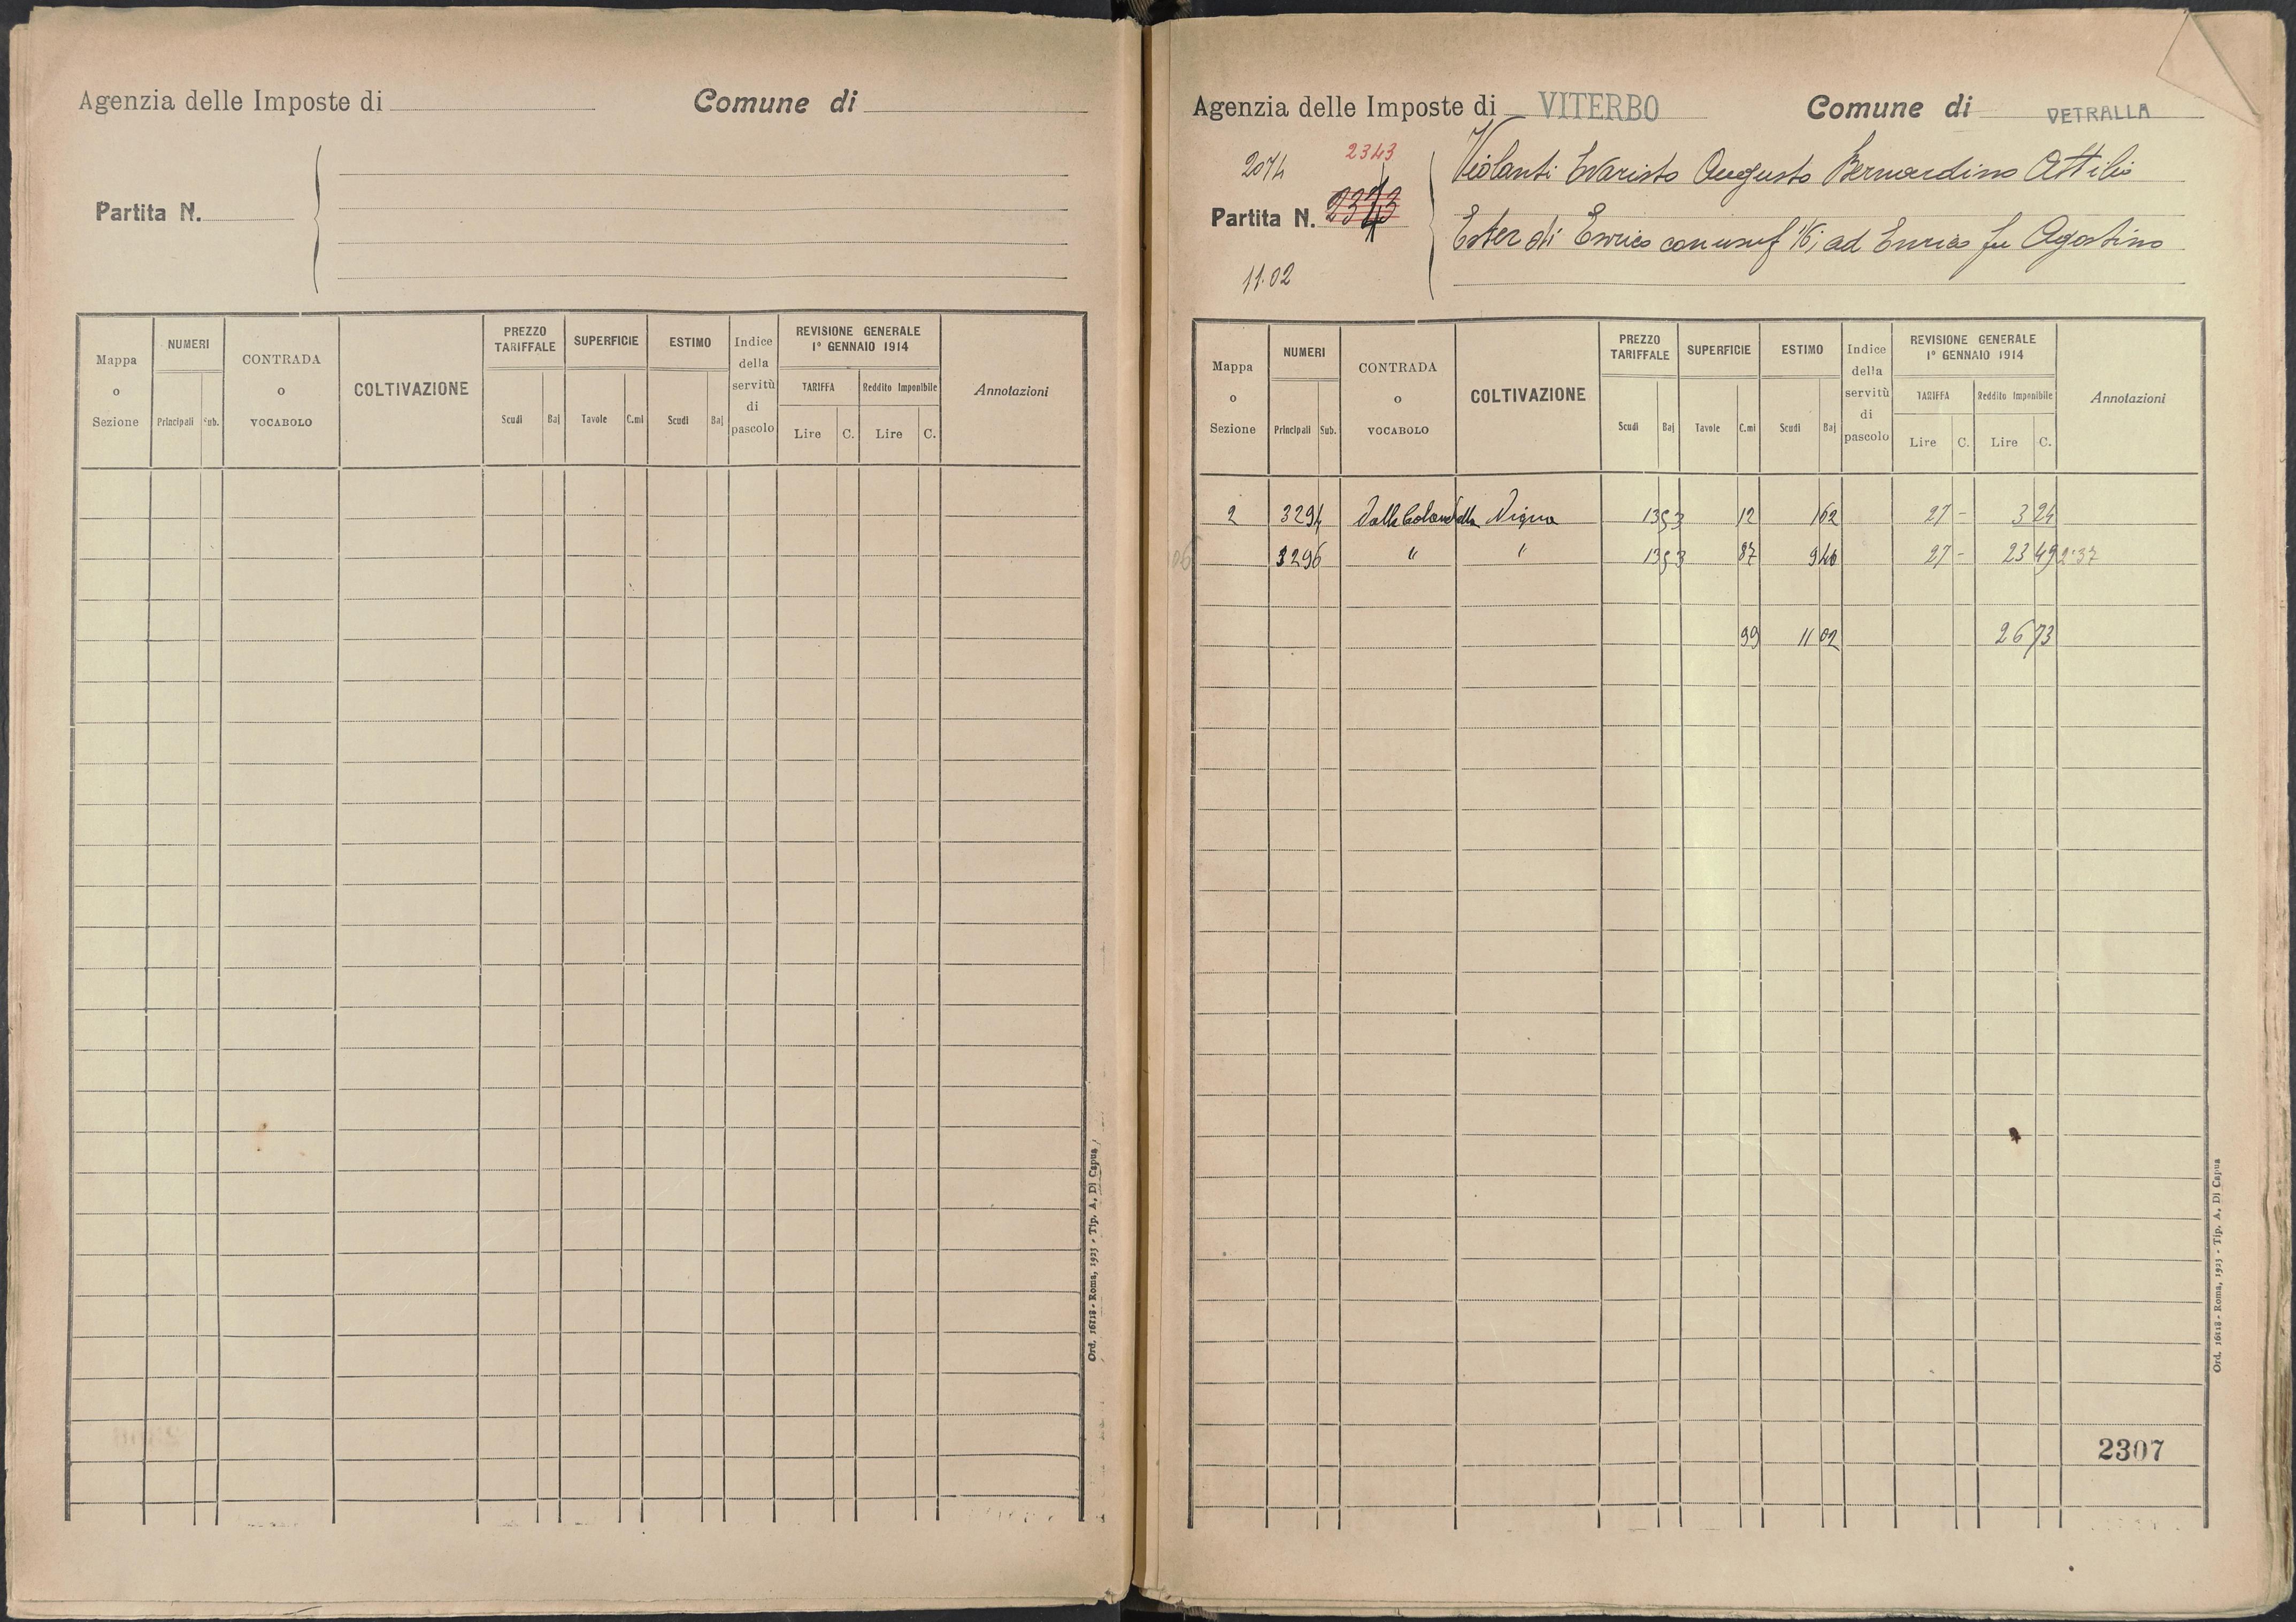 Agenzia delle Imposte di
Comune di
Partita N.
Mappa o Sezione
NUMERI
Principali
Sub.
CONTRADA o VOCABOLO
COLTIVAZIONE
PREZZO TARIFFALE
Scudi
Baj
SUPERFICIE
Tavole
C.mi
ESTIMO
Scudi
Baj
Indice della servitù di pascolo
REVISIONE GENERALE
1° GENNAIO 1914
TARIFFA
Reddito Imponibile
Lire
C.
Lire
C.
Annotazioni
Ord. 16118 - Roma, 1923 - Tip. A. Di Capua
Agenzia delle Imposte di VITERBO
Comune di VETRALLA
2074
2343
Partita N.
11.02
Violanti Evaristo Augusto Bernardino Attilio
Ester di Enrico con usuf 1/6 ad Enrico fu Agostino
Mappa o Sezione
NUMERI
Principali
Sub.
CONTRADA o VOCABOLO
COLTIVAZIONE
PREZZO TARIFFALE
Scudi
Baj
SUPERFICIE
Tavole
C.mi
ESTIMO
Scudi
Baj
Indice della servitù di pascolo
REVISIONE GENERALE
1° GENNAIO 1914
TARIFFA
Reddito Imponibile
Lire
C.
Lire
C.
Annotazioni
2 3294 Vigna 13 53 12 1 62 27 - 3 24
3296 " " 13 53 87 9 40 27 - 23 49 2.37
99 11 02 26 73
2307
Ord. 16118 - Roma, 1923 - Tip. A. Di Capua